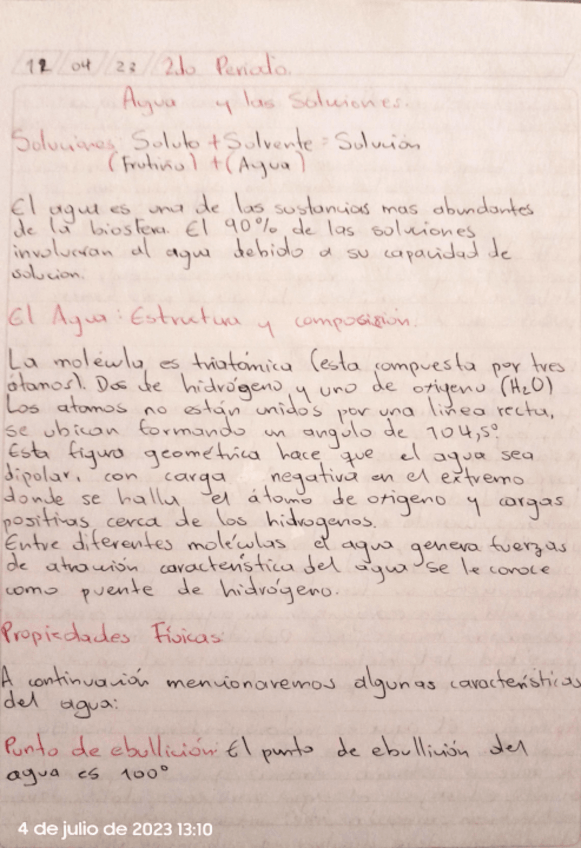 12 04 23 2do Periodo.
Agua y las Soluciones.
Soluciones Soluto + Solvente = Solución
(Frutiño) + (Agua)
El agua es una de las sustancias mas abundantes
de la biosfera. El 90% de las soluciones
involucran al agua debido a su capacidad de
solucion.
El Agua: Estructura y composición.
La molécula es triatómica (esta compuesta por tres
átamos). Dos de hidrógeno y uno de oxigeno (H₂O)
Los atomos no están unidos por una linea recta,
se ubican formando un angulo de 104,5°.
Esta figura geométrica hace que el agua sea
dipolar, con carga negativa en el extremo
donde se halla el átomo de oxigeno y cargas
positivas cerca de los hidrogenos.
Entre diferentes moléculas el agua genera fuerzas
de atracción característica del agua se le conoce
como puente de hidrógeno.
Propiedades Físicas
A continuación mencionaremos algunas características
del agua:
Punto de ebullición: El punto de ebullición del
agua es 100°
4 de julio de 2023 13:10